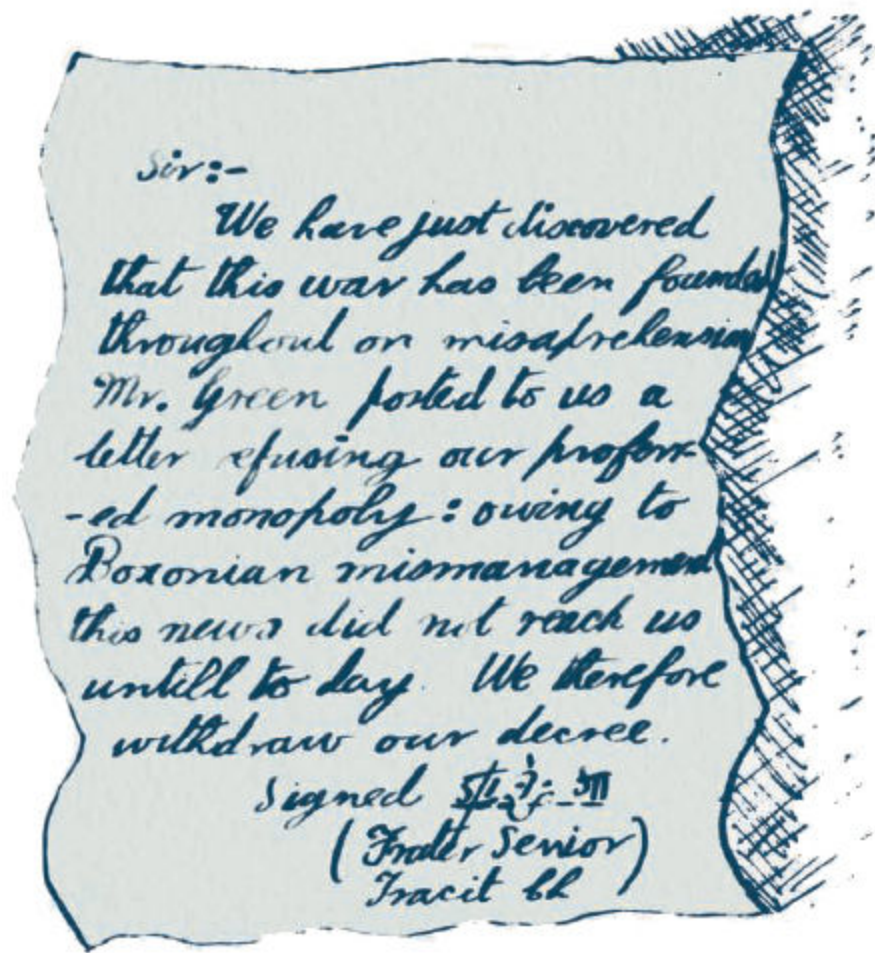 Sir:-
We have just discovered
that this war has been founded
throughout on misaprehension
Mr. Green posted to us a
letter efusing our proferr-
-ed monopoly: owing to
Boxonian mismanagement
this news did not reach us
untill to day. We therefore
withdraw our decree.
Signed
(Frater Senior)
Tracit